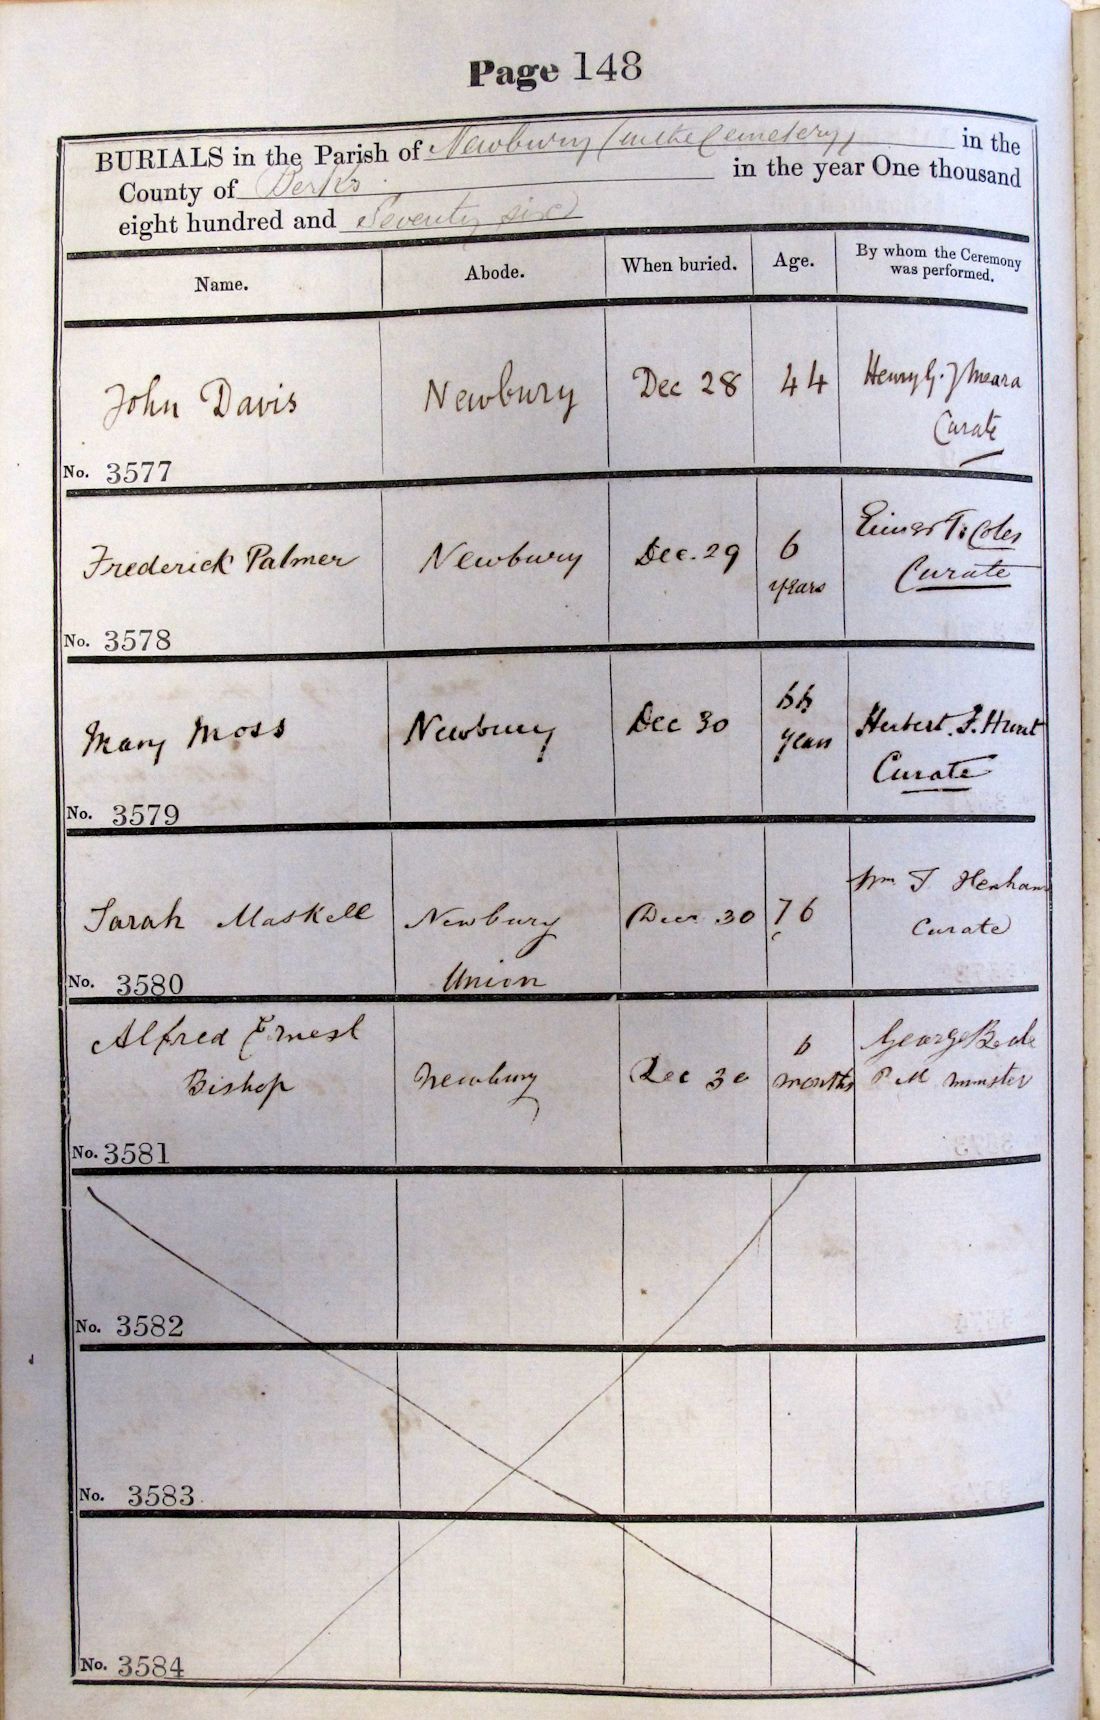 Page 148
BURIALS in the Parish of Newbury (in the Cemetery) in the
County of Berks in the year One thousand
eight hundred and Seventy six
Name. Abode. When buried. Age. By whom the Ceremony was performed.
John Davis Newbury Dec 28 44 Henry G. J Meara
Curate
No. 3577
Frederick Palmer Newbury Dec. 29 6 years Coles
Curate
No. 3578
Mary Moss Newbury Dec 30 66 years Herbert F. Hunt
Curate
No. 3579
Sarah Maskell Newbury Decr 30 76 Wm T Henham
Curate
No. 3580 Union
Alfred Ernest
Bishop Newbury Dec 30 6 months George
P M minister
No. 3581
No. 3582
No. 3583
No. 3584